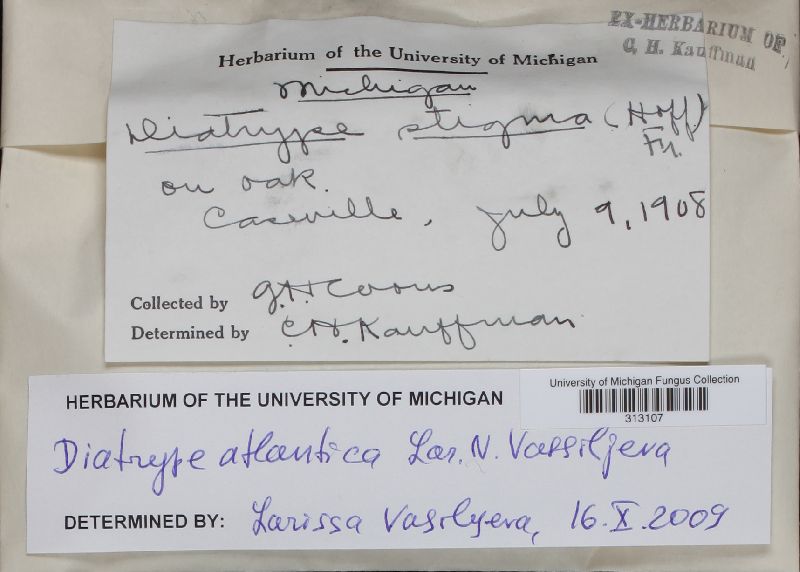 EX-HERBARIUM OF
C. H. Kauffman
Herbarium of the University of Michigan
Michigan
Diatrype stigma (Hoff)
Fr.
on oak.
Caseville, July 9, 1908
Collected by G.H. Coons
Determined by C.H. Kauffman
University of Michigan Fungus Collection
313107
HERBARIUM OF THE UNIVERSITY OF MICHIGAN
Diatrype atlantica Lar. N. Vassiljeva
DETERMINED BY: Larissa Vasilyeva, 16.X.2009